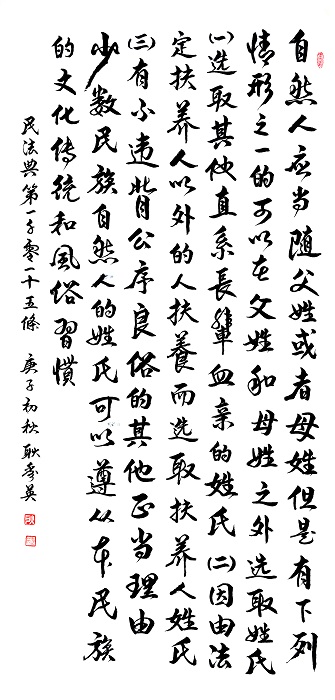 自然人应当随父姓或者母姓但是有下列
情形之一的可以在父姓和母姓之外选取姓氏
(一)选取其他直系長輩血亲的姓氏(二)因由法
定扶养人以外的人扶養而选取扶养人姓氏
(三)有不违背公序良俗的其他正当理由
少数民族自然人的姓氏可以遵从本民族
的文化传统和風俗習慣
民法典第一千零一十五條 庚子初秋耿秀英